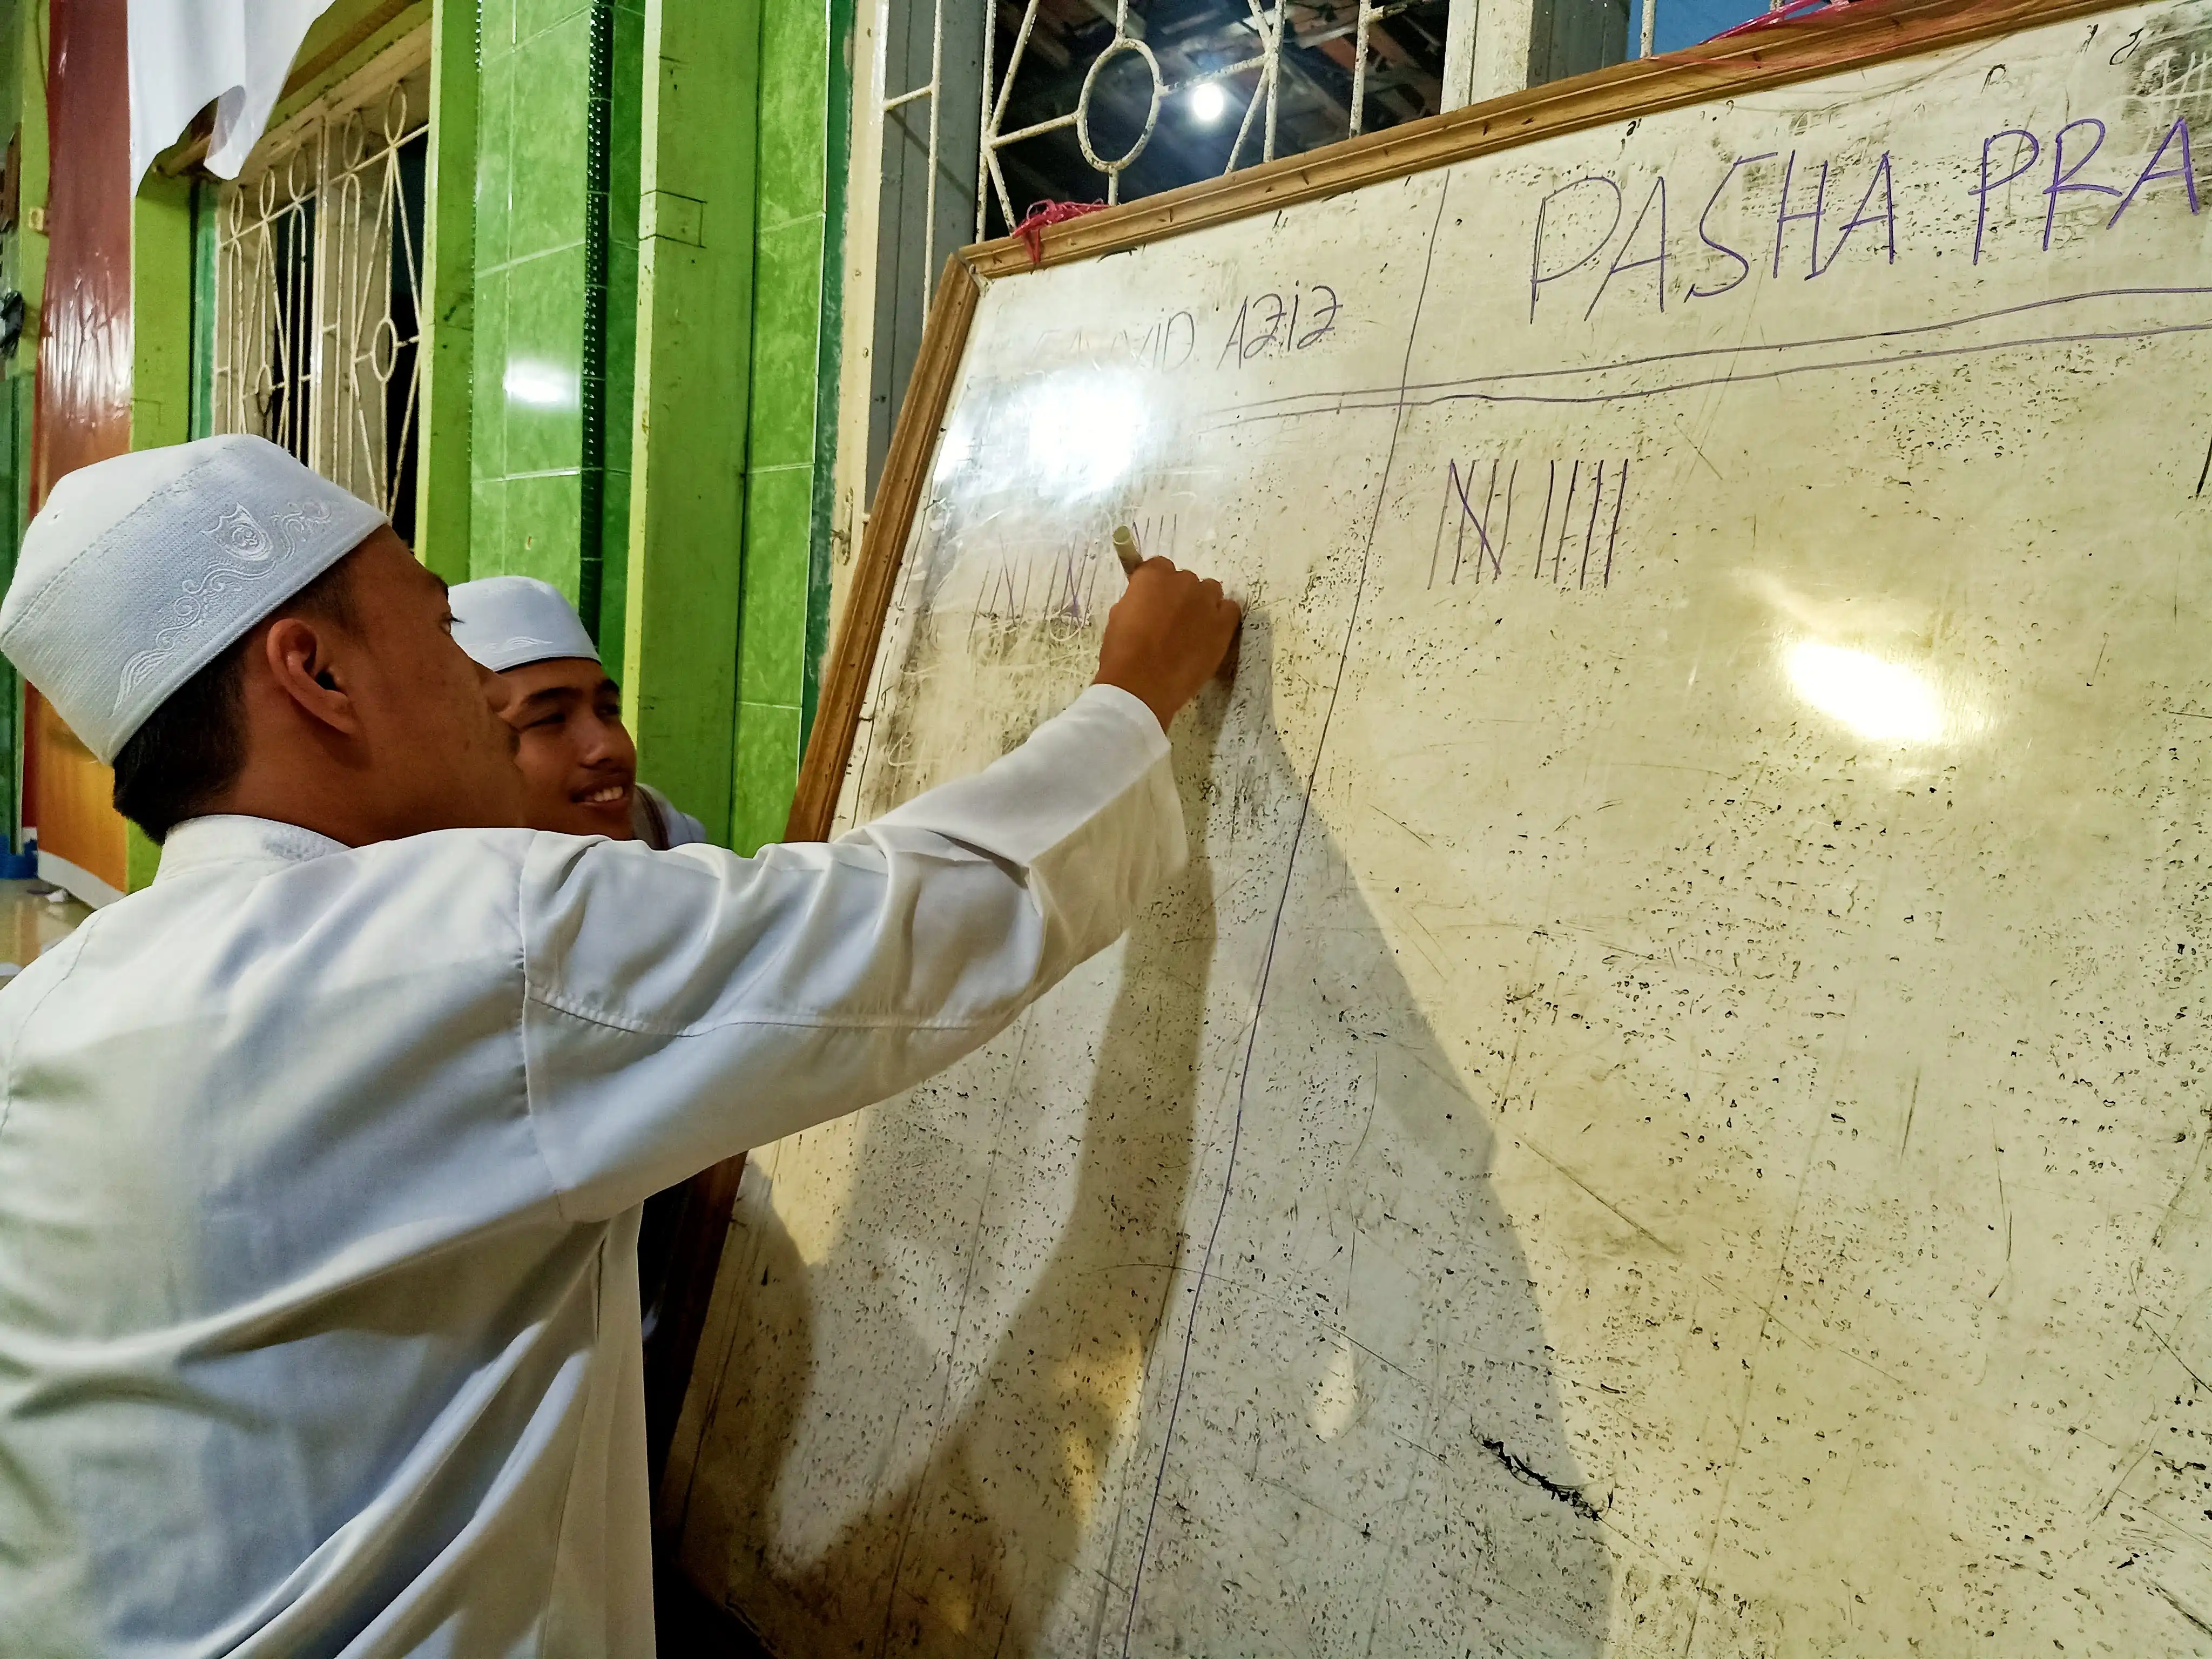 AZIZ
PASHA PRA